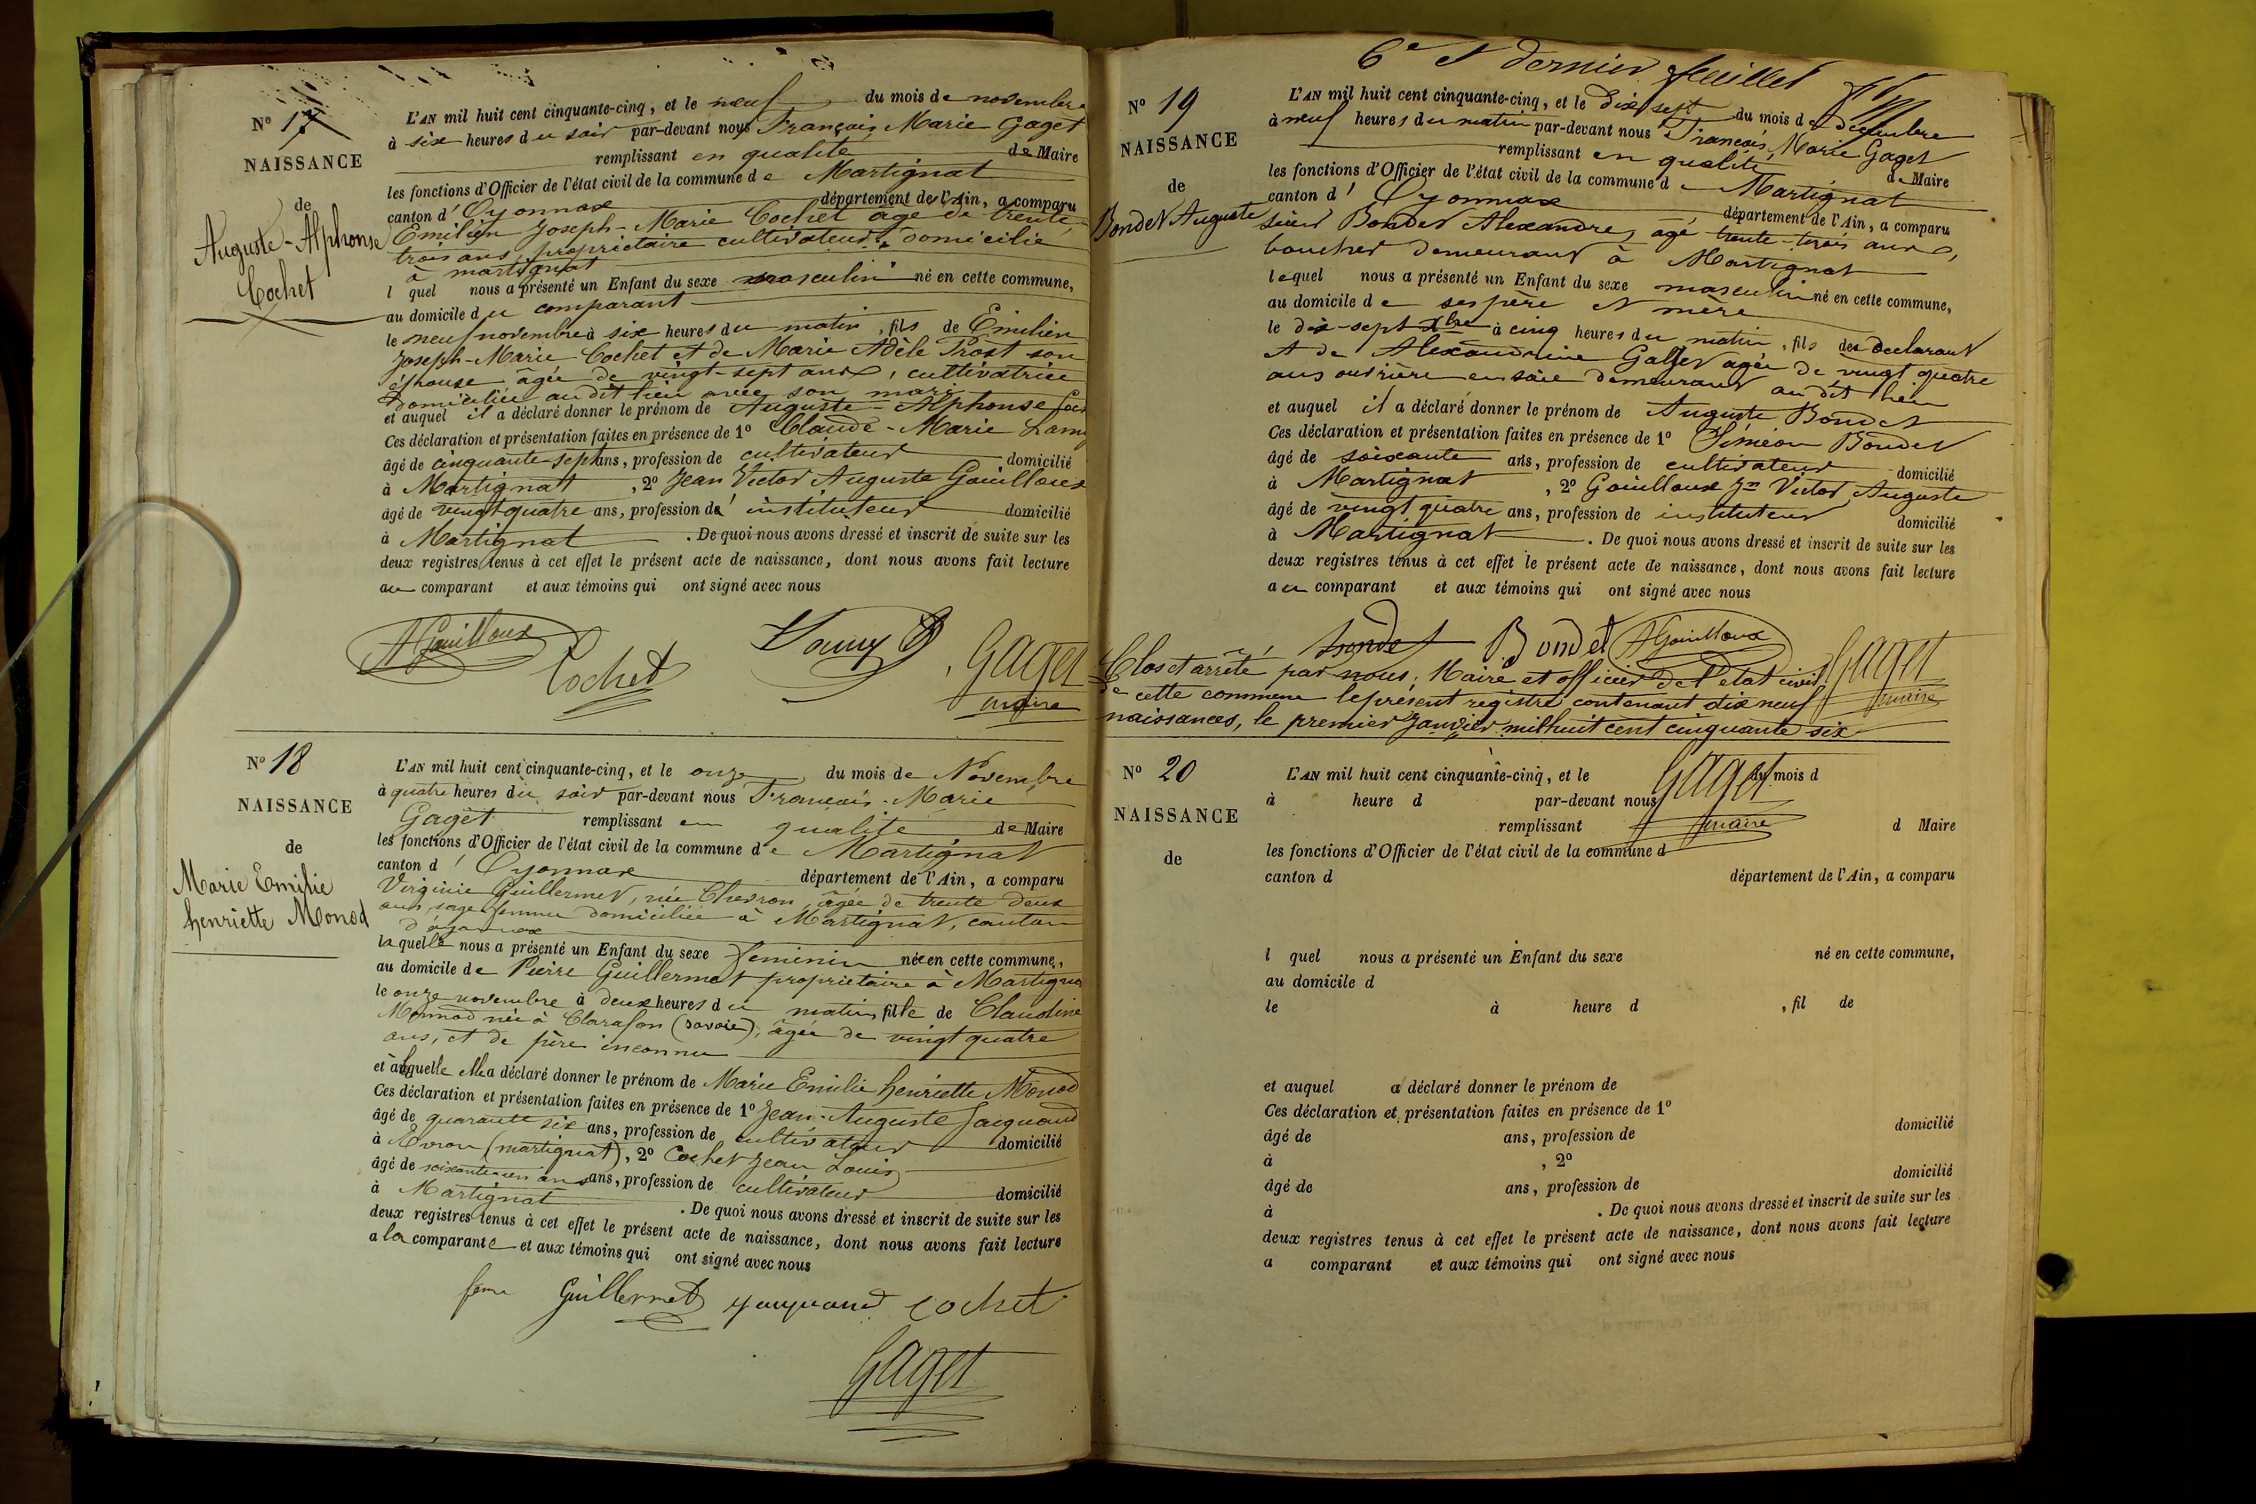 N° 17
NAISSANCE
de
Auguste-Alphonse
Cochet
L'AN mil huit cent cinquante-cinq, et le neuf du mois de novembre
à six heures du soir par-devant nous François Marie Gaget
remplissant en qualité de Maire
les fonctions d'Officier de l'état civil de la commune de Martignat
canton d'Oyonnax département de l'Ain, a comparu
Emilien Joseph-Marie Cochet agé de trente
trois ans, propriétaire cultivateur domicilié
à martignat
l quel nous a présenté un Enfant du sexe masculin né en cette commune,
au domicile du comparant
le neuf novembre à six heures du matin, fils de Emilien
Joseph-Marie Cochet et de Marie Adèle Prost son
épouse âgée de vingt-sept ans, cultivatrice
domiciliée au dit lieu avec son mari
et auquel il a déclaré donner le prénom de Auguste-Alphonse
Ces déclaration et présentation faites en présence de 1° Claude-Marie Lamy
âgé de cinquante-sept ans, profession de cultivateur domicilié
à Martignat, 2° Jean Victor Auguste Gouilloux
âgé de vingt quatre ans, profession d'instituteur domicilié
à Martignat. De quoi nous avons dressé et inscrit de suite sur les
deux registres tenus à cet effet le présent acte de naissance, dont nous avons fait lecture
au comparant et aux témoins qui ont signé avec nous
AGouilloux
Cochet
Gaget
maire
N° 18
NAISSANCE
de
Marie Emilie
henriette Monod
L'AN mil huit cent cinquante-cinq, et le onze du mois de Novembre
à quatre heures du soir par-devant nous Francois-Marie
Gaget remplissant en qualité de Maire
les fonctions d'Officier de l'état civil de la commune de Martignat
canton d'Oyonnax département de l'Ain, a comparu
Virginie Guillermet, née Chevron, âgée de trente deux
ans, sage femme domiciliée à Martignat, canton
d'oyonnax
laquelle nous a présenté un Enfant du sexe feminin née en cette commune,
au domicile de Pierre Guillermet propriétaire à Martignat
le onze novembre à deux heures du matin, fille de Claudine
Monnod née à Clarafon (savoie), âgée de vingt quatre
ans, et de père inconnu
et à laquelle elle a déclaré donner le prénom de Marie Emilie henriette Monod
Ces déclaration et présentation faites en présence de 1° Jean-Auguste Jacquand
âgé de quarante six ans, profession de cultivateur domicilié
à Evron (martignat), 2° Cochet Jean Louis
âgé de soixante-un ans ans, profession de cultivateur domicilié
à Martignat. De quoi nous avons dressé et inscrit de suite sur les
deux registres tenus à cet effet le présent acte de naissance, dont nous avons fait lecture
a la comparante et aux témoins qui ont signé avec nous
feme Guillermet Jacquand Cochet
Gaget
6e et dernier feuillet
N° 19
NAISSANCE
de
Bondet Auguste
L'AN mil huit cent cinquante-cinq, et le Dix sept du mois de décembre
à neuf heures du matin par-devant nous Francois Marie Gaget
remplissant en qualité de Maire
les fonctions d'Officier de l'état civil de la commune de Martignat
canton d'Oyonnax département de l'Ain, a comparu
sieur Bondet Alexandre, agé trente-trois ans,
boucher demeurant à Martignat
lequel nous a présenté un Enfant du sexe masculin né en cette commune,
au domicile de ses père et mère
le dix-sept Xbre à cinq heures du matin, fils des declarant
et de Alexandrine Gallet agée de vingt quatre
ans ouvrière en soie demeurant au dit lieu
et auquel il a déclaré donner le prénom de Auguste Bondet
Ces déclaration et présentation faites en présence de 1° Siméon Bondet
âgé de soixante ans, profession de cultivateur domicilié
à Martignat, 2° Gouilloux Jn Victor Auguste
âgé de vingt quatre ans, profession de instituteur domicilié
à Martignat. De quoi nous avons dressé et inscrit de suite sur les
deux registres tenus à cet effet le présent acte de naissance, dont nous avons fait lecture
au comparant et aux témoins qui ont signé avec nous
bondet Bondet AGouilloux
Gaget
maire
Clos et arrêté par nous, Maire et officier de l'état civil
de cette commune le présent registre contenant dix neuf
naissances, le premier Janvier mil huit cent cinquante six
Gaget
maire
N° 20
NAISSANCE
de
L'AN mil huit cent cinquante-cinq, et le du mois d
à heure d par-devant nous
remplissant d Maire
les fonctions d'Officier de l'état civil de la commune d
canton d département de l'Ain, a comparu
l quel nous a présenté un Enfant du sexe né en cette commune,
au domicile d
le à heure d , fil de
et auquel a déclaré donner le prénom de
Ces déclaration et présentation faites en présence de 1°
âgé de ans, profession de domicilié
à , 2°
âgé de ans, profession de domicilié
à . De quoi nous avons dressé et inscrit de suite sur les
deux registres tenus à cet effet le présent acte de naissance, dont nous avons fait lecture
a comparant et aux témoins qui ont signé avec nous